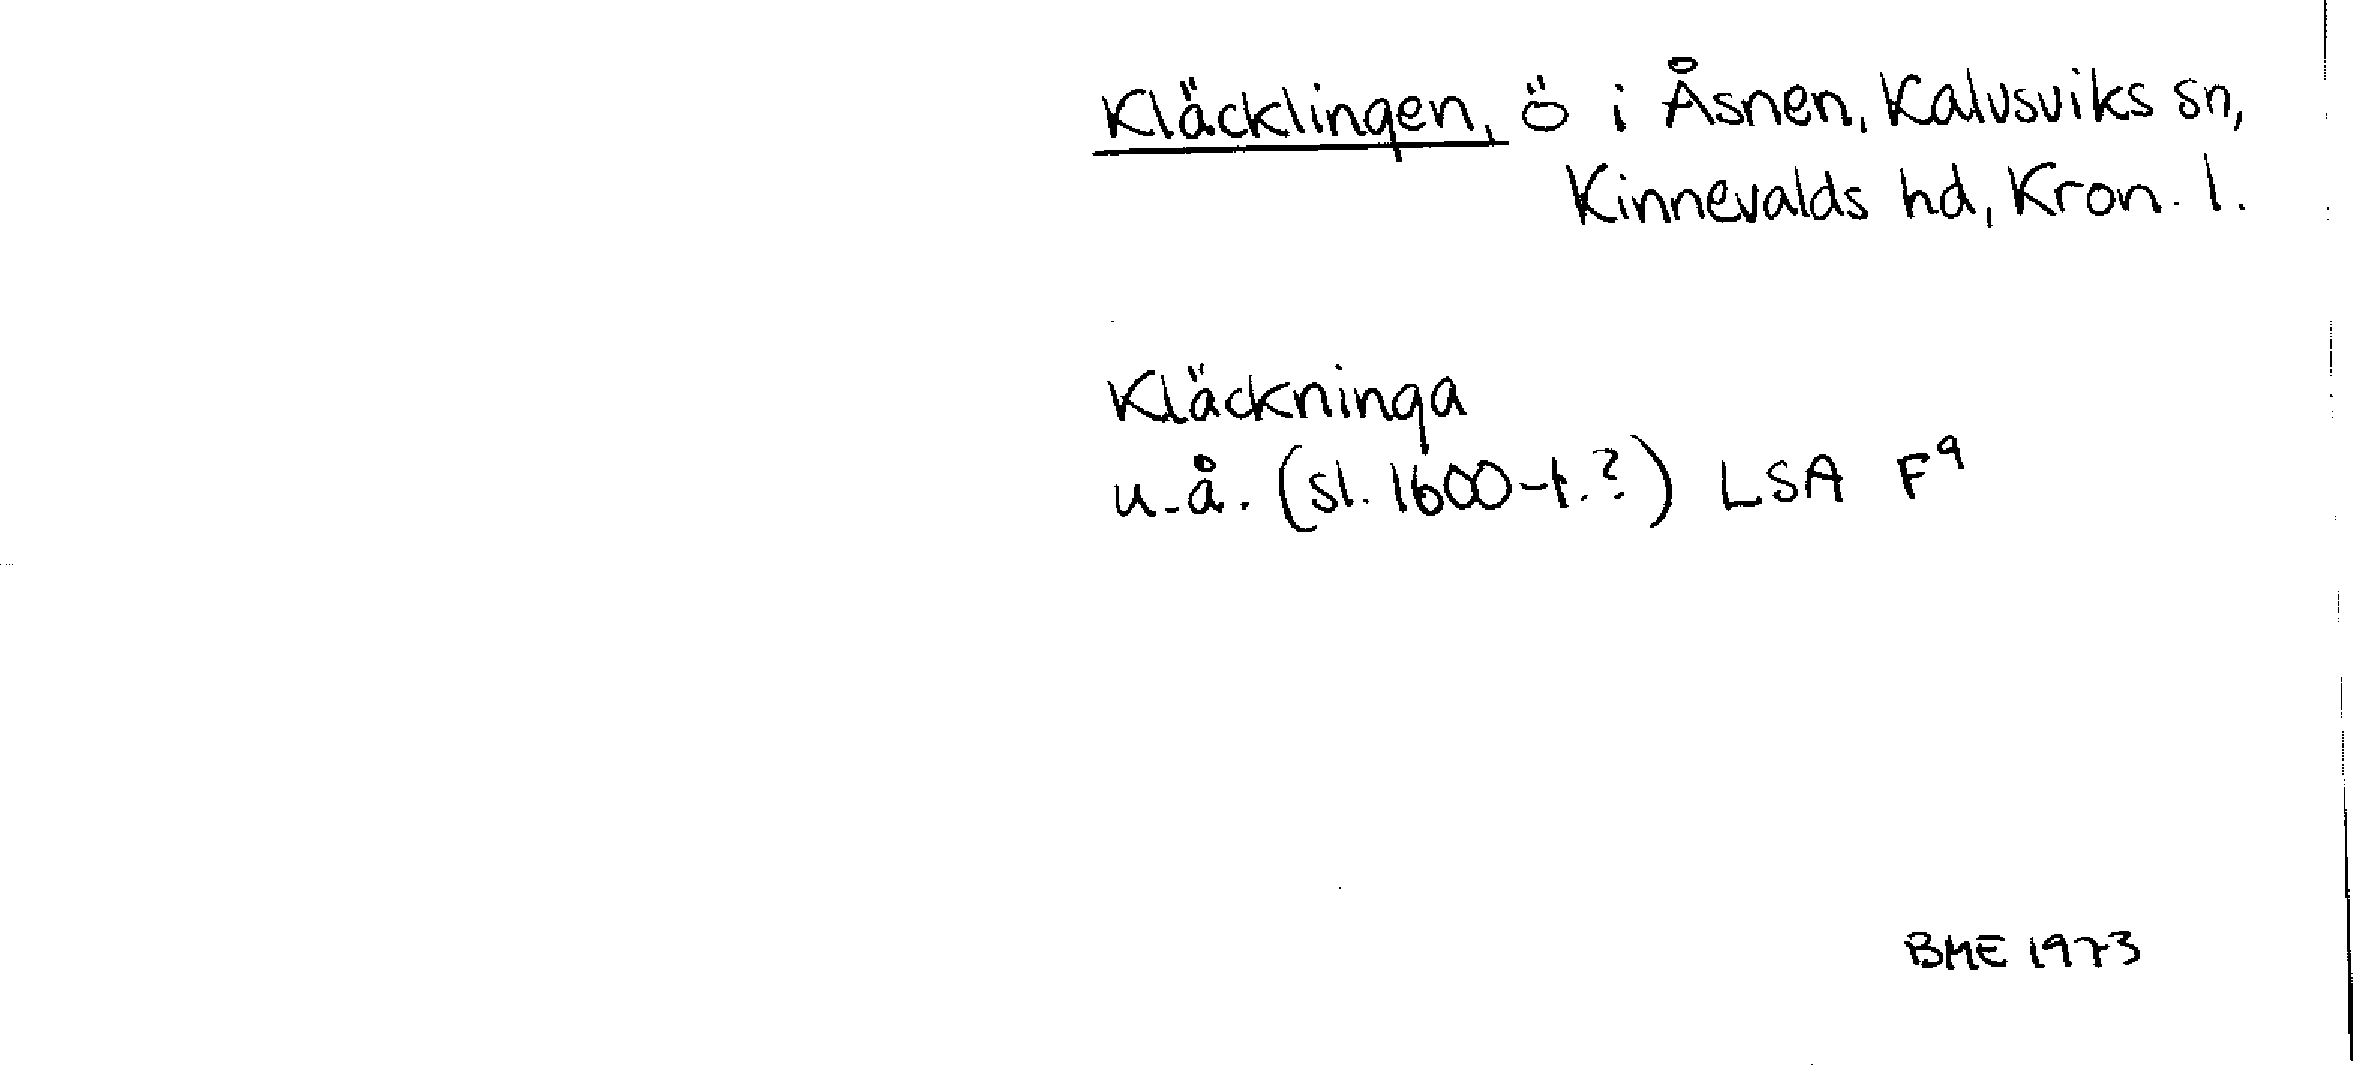 Kläcklingen, ö i Åsnen, Kalvsviks sn,
Kinnevalds hd, Kron. l.
Kläckninga
u.å. (sl. 1600-t.?) LSA F9
BME 1973